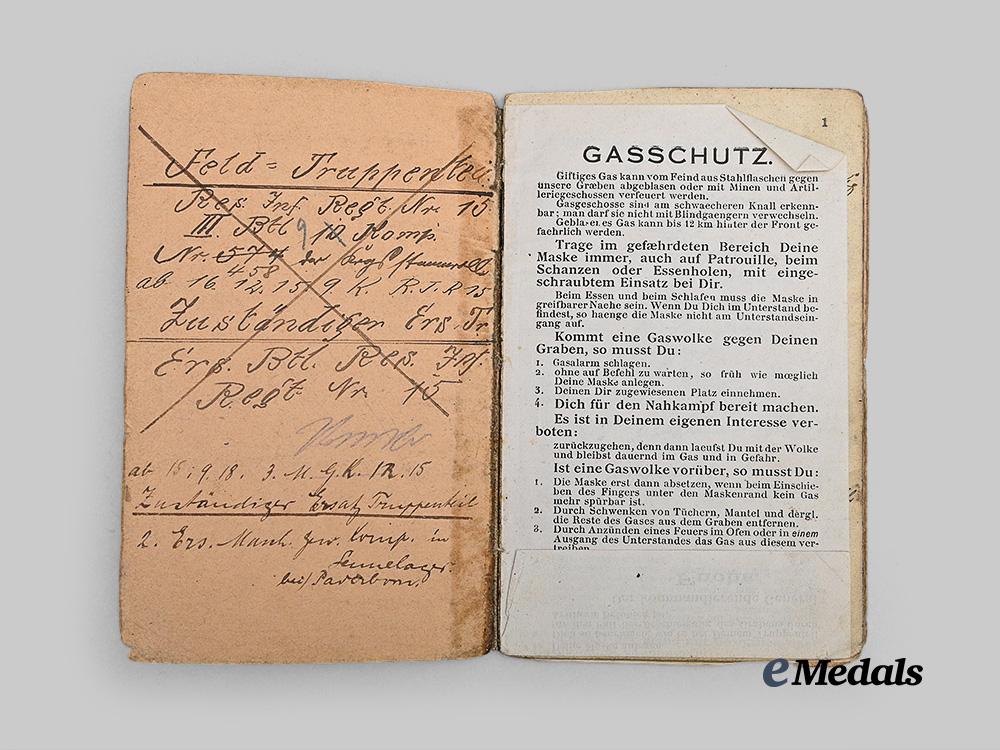 Feld = Truppenteil.
Res Inf. Regt. Nr. 15
III. Btl. 9 Komp.
Nr. 574 der
458
ab 16. 12. 15 9. K. R. I. R 15
Zuständiger Ers. Tr.
Ers. Btl. Res. Inf.
Regt Nr. 15
ab 15. 9. 18. 3. M. G. K. I.R. 15
Zuständiger Ersatz Truppenteil
2. Ers. Masch. Gew. Komp. in
Sennelager.
bei Paderborn.
1
GASSCHUTZ.
Giftiges Gas kann vom Feind aus Stahlflaschen gegen
unsere Græben abgeblasen oder mit Minen und Artil-
leriegeschossen verfeuert werden.
Gasgeschosse sind am schwaecheren Knall erkenn-
bar; man darf sie nicht mit Blindgaengern verwechseln.
Geblasenes Gas kann bis 12 km hinter der Front ge-
faehrlich werden.
Trage im gefæhrdeten Bereich Deine
Maske immer, auch auf Patrouille, beim
Schanzen oder Essenholen, mit einge-
schraubtem Einsatz bei Dir.
Beim Essen und beim Schlafen muss die Maske in
greifbarer Naehe sein. Wenn Du Dich im Unterstand be-
findest, so haenge die Maske nicht am Unterstandsein-
gang auf.
Kommt eine Gaswolke gegen Deinen
Graben, so musst Du:
1. Gasalarm schlagen.
2. ohne auf Befehl zu warten, so früh wie mœglich
Deine Maske anlegen.
3. Deinen Dir zugewiesenen Platz einnehmen.
4. Dich für den Nahkampf bereit machen.
Es ist in Deinem eigenen Interesse ver-
boten:
zurückzugehen, denn dann laeufst Du mit der Wolke
und bleibst dauernd im Gas und in Gefahr.
Ist eine Gaswolke vorüber, so musst Du:
1. Die Maske erst dann absetzen, wenn beim Einschie-
ben des Fingers unter den Maskenrand kein Gas
mehr spürbar ist.
2. Durch Schwenken von Tüchern, Mantel und dergl.
die Reste des Gases aus dem Graben entfernen.
3. Durch Anzünden eines Feuers im Ofen oder in einem
Ausgang des Unterstandes das Gas aus diesem ver-
treiben.
eMedals